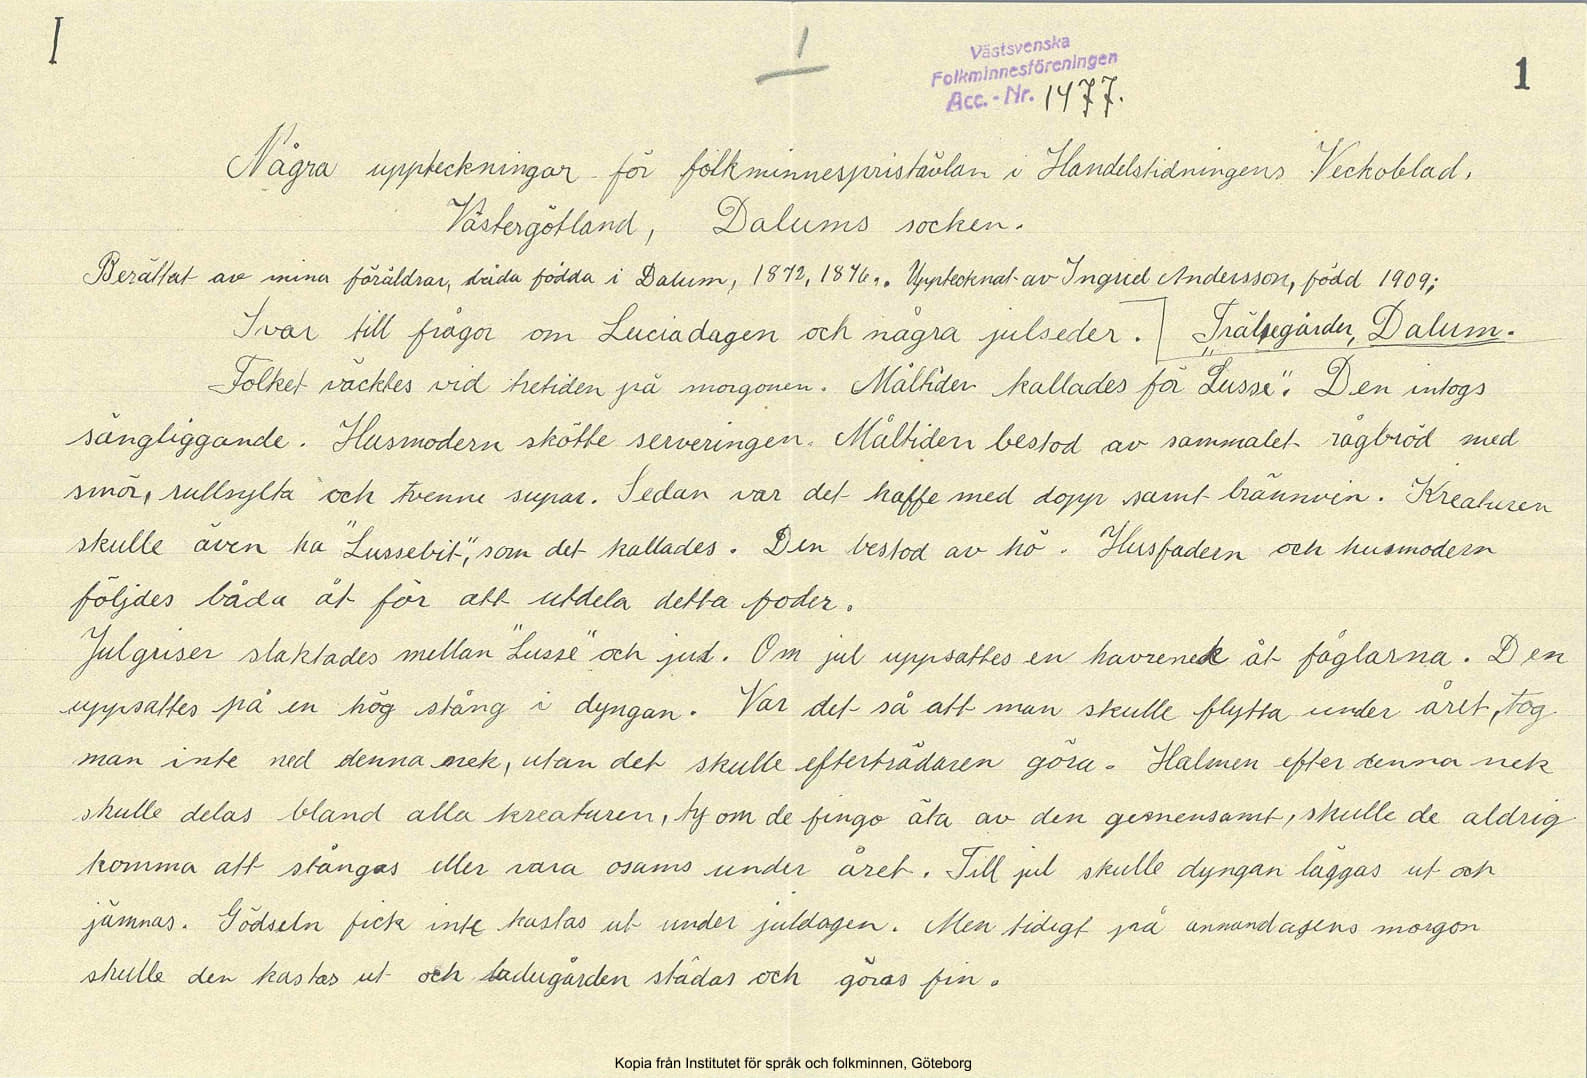 I
1
Västsvenska
Folkminnesföreningen
Acc.-Nr. 1477.
1
Några uppteckningar för folkminnespristävlan i Handelstidningens Veckoblad.
Västergötland, Dalums socken.
Berättat av mina föräldrar, båda födda i Dalum, 1872, 1876. Upptecknat av Ingrid Andersson, född 1909;
Svar till frågor om Luciadagen och några julseder. Dalum.
Folket väcktes vid tretiden på morgonen. Måltiden kallades för "Lusse". Den intogs
sängliggande. Husmodern skötte serveringen. Måltiden bestod av sammalet rågbröd med
smör, rullsylta och tvenne supar. Sedan var det kaffe med dopp samt brännvin. Kreaturen
skulle även ha "Lussebit", som det kallades. Den bestod av hö. Husfadern och husmodern
följdes båda åt för att utdela detta foder.
Julgrisen slaktades mellan "Lusse" och jul. Om jul uppsattes en havrenek åt fåglarna. Den
uppsattes på en hög stång i dyngan. Var det så att man skulle flytta under året, tog
man inte ned denna nek, utan det skulle efterträdaren göra. Halmen efter denna nek
skulle delas bland alla kreaturen, ty om de fingo äta av den gemensamt, skulle de aldrig
komma att stångas eller vara osams under året. Till jul skulle dyngan läggas ut och
jämnas. Gödseln fick inte kastas ut under juldagen. Men tidigt på annandagens morgon
skulle den kastas ut och ladugården städas och göras fin.
Kopia från Institutet för språk och folkminnen, Göteborg